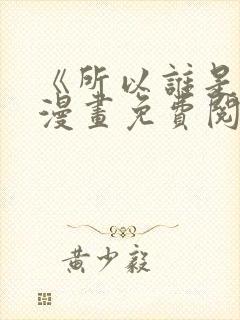 《所以誰是
漫畫免費閱
黃少毅